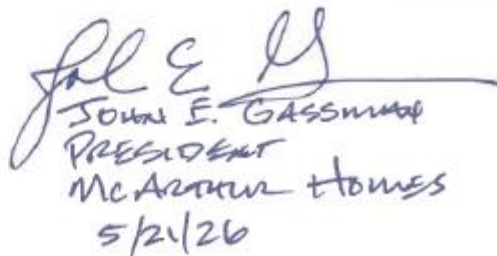 JOHN E. GASSMAN
PRESIDENT
MCARTHUR HOMES
5/21/26